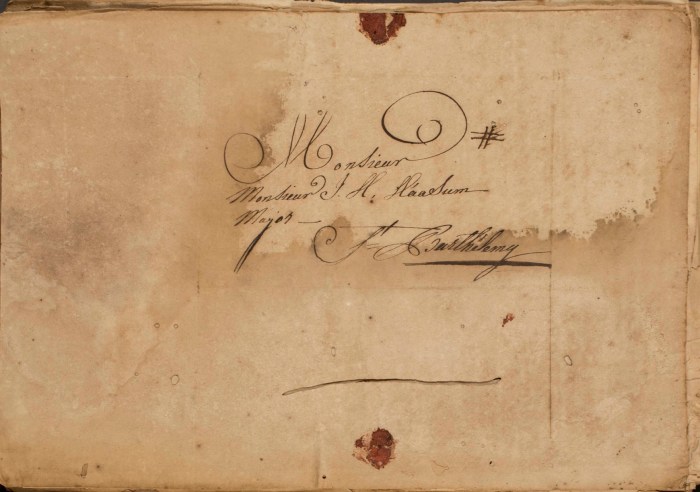 Monsieur #
Monsieur J. H. Haasum
Major —
St Barthélemy